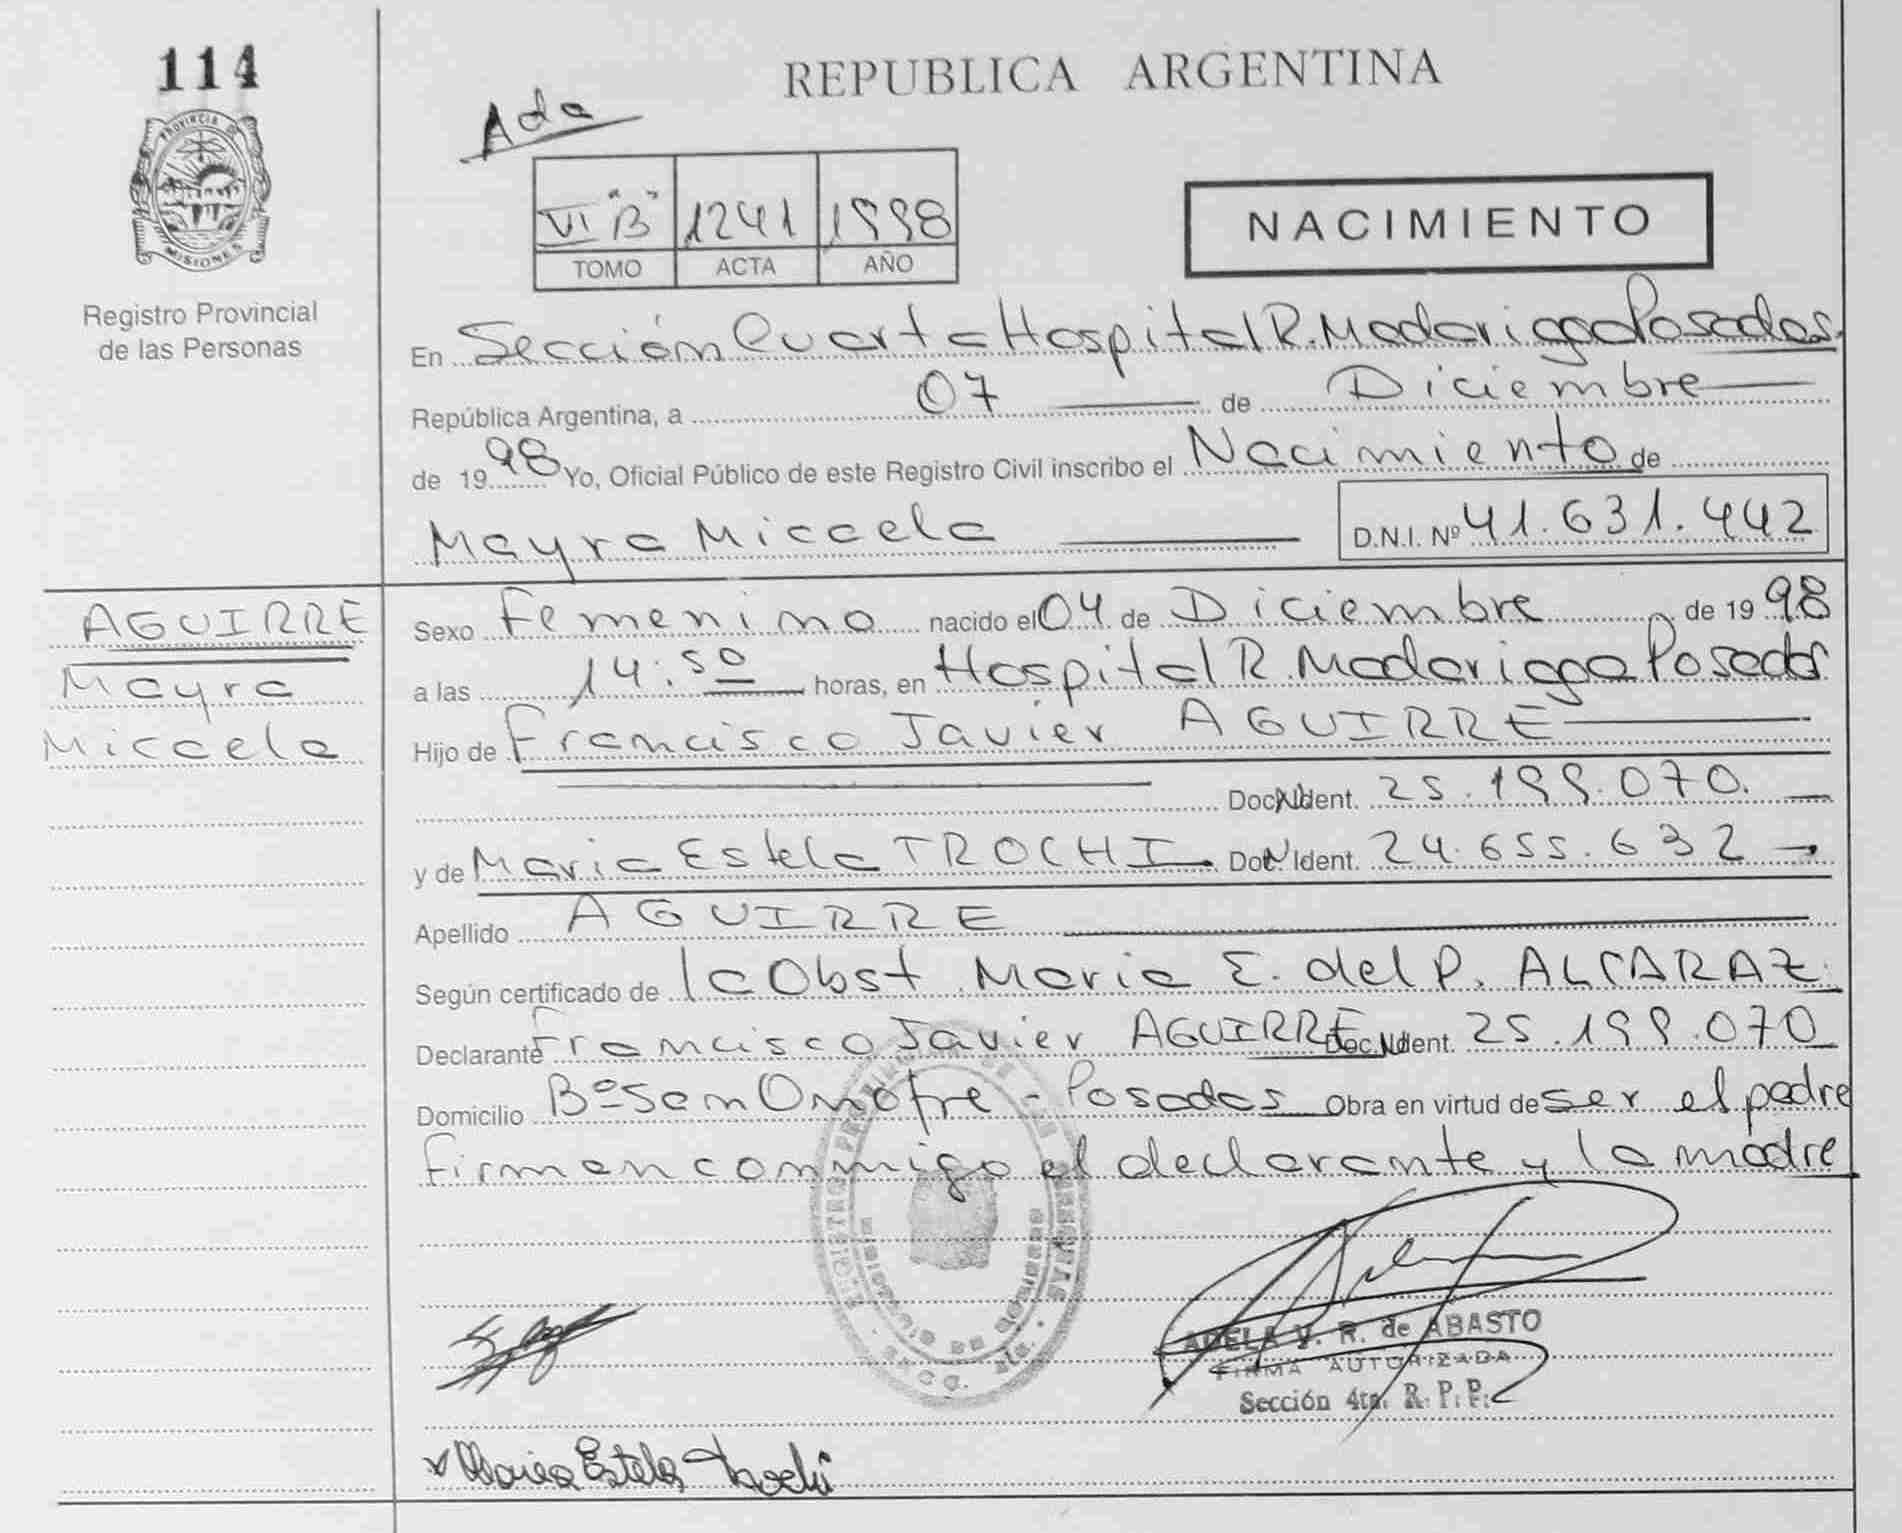 114
PROVINCIA DE
MISIONES
Registro Provincial
de las Personas
REPUBLICA ARGENTINA
Ada
VI "B" 1241 1998
TOMO ACTA AÑO
NACIMIENTO
En Sección Cuarta Hospital R. Madariaga Posadas.
República Argentina, a 07 de Diciembre
de 1998 Yo, Oficial Público de este Registro Civil inscribo el Nacimiento de
Mayra Micaela D.N.I. Nº 41.631.442
AGUIRRE
Mayra
Micaela
Sexo Femenino nacido el 04 de Diciembre de 1998
a las 14:50 horas, en Hospital R. Madariaga Posadas
Hijo de Francisco Javier AGUIRRE
Doc. Ident. 25.199.070.
y de Maria Estela TROCHI Doc. Ident. 24.655.632
Apellido AGUIRRE
Según certificado de la Obst Maria E. del P. ALCARAZ.
Declarante Francisco Javier AGUIRRE Doc. Ident. 25.199.070
Domicilio Bº San Onofre - Posadas Obra en virtud de ser el padre
firman conmigo el declarante y la madre
ADELA V. R. de ABASTO
FIRMA AUTORIZADA
Sección 4ta. R. P. P.
Maria Estela Trochi